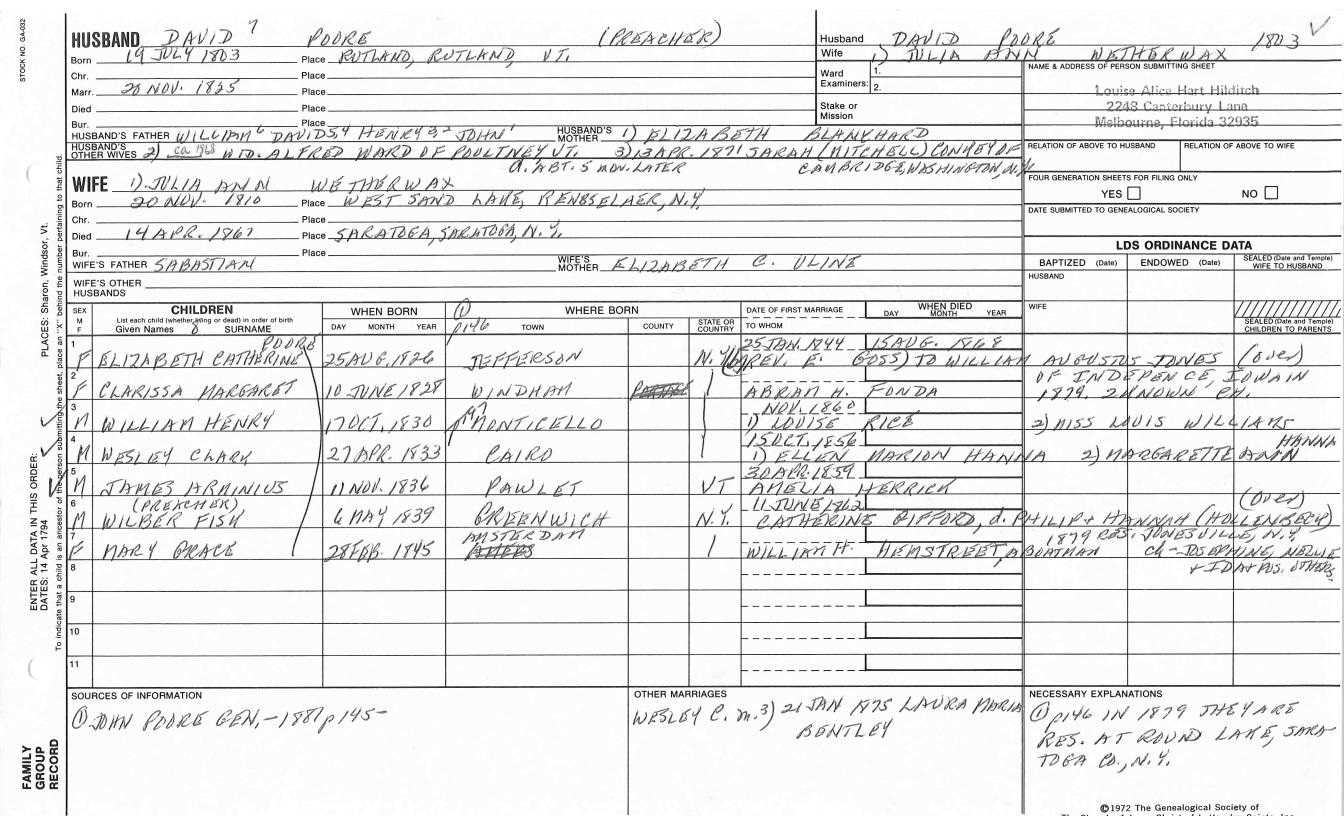 STOCK NO. GA-032
HUSBAND DAVID 7 POORE (PREACHER)
Born 19 JULY 1803 Place RUTLAND, RUTLAND, VT.
Chr. Place
Marr. 20 NOV. 1825 Place
Died Place
Bur. Place
HUSBAND'S FATHER WILLIAM6 DAVID54 HENRY3,2 JOHN1 HUSBAND'S MOTHER 1) ELIZABETH BLANCHARD
HUSBAND'S OTHER WIVES 2) ca 1968 WID. ALFRED WARD OF POULTNEY VT. 3) 13 APR. 1871 SARAH (MITCHELL) CONKEY OF
d. ABT. 5 MON. LATER CAMBRIDGE, WASHINGTON, N.Y.
Husband DAVID POORE 1803
Wife 1) JULIA ANN WETHERWAX
Ward 1.
Examiners: 2.
Stake or
Mission
NAME & ADDRESS OF PERSON SUBMITTING SHEET
Louise Alice Hart Hilditch
2248 Canterbury Lane
Melbourne, Florida 32935
RELATION OF ABOVE TO HUSBAND RELATION OF ABOVE TO WIFE
FOUR GENERATION SHEETS FOR FILING ONLY
YES NO
DATE SUBMITTED TO GENEALOGICAL SOCIETY
WIFE 1). JULIA ANN WETHERWAX
Born 20 NOV. 1810 Place WEST SAND LAKE, RENSSELAER, N.Y.
Chr. Place
Died 14 APR. 1867 Place SARATOGA, SARATOGA, N.Y.
Bur. Place
WIFE'S FATHER SABASTIAN WIFE'S MOTHER ELIZABETH C. ULINE
WIFE'S OTHER
HUSBANDS
LDS ORDINANCE DATA
BAPTIZED (Date) ENDOWED (Date) SEALED (Date and Temple) WIFE TO HUSBAND
HUSBAND
WIFE
SEALED (Date and Temple) CHILDREN TO PARENTS
SEX M F CHILDREN WHEN BORN WHERE BORN DATE OF FIRST MARRIAGE WHEN DIED
List each child (whether living or dead) in order of birth
Given Names 8 SURNAME DAY MONTH YEAR ① p146 TOWN COUNTY STATE OR COUNTRY TO WHOM DAY MONTH YEAR
POORE 25 JAN. 1844 15 AUG. 1868
1 F ELIZABETH CATHERINE 25 AUG. 1826 JEFFERSON N.Y. (by REV. E. GOSS) TO WILLIAM AUGUSTUS JONES (over)
OF INDEPENCE, IOWA IN
2 F CLARISSA MARGARET 10 JUNE 1828 WINDHAM ABRAM H. FONDA 1879. 2 KNOWN CH.
NOV. 1860
3 M WILLIAM HENRY 17 OCT. 1830 p147 MONTICELLO 1) LOUISE RICE 2) MISS LOUIS WILLIAMS
15 OCT. 1856 HANNA
4 M WESLEY CLARK 27 APR. 1833 CAIRO 1) ELLEN MARION HANNA 2) MARGARETTE ANN
30 APR. 1859
5 M JAMES ARMINIUS 11 NOV. 1836 PAWLET VT AMELIA HERRICK
(PREACHER) 11 JUNE 1862 (over)
6 M WILBER FISK 6 MAY 1839 GREENWICH N.Y. CATHERINE GIFFORD, d. PHILIP + HANNAH (HOLLENBECK)
AMSTERDAM 1879 RES. JONESVILLE, N.Y.
7 F MARY GRACE 28 FEB. 1845 WILLIAM H. HEMSTREET, A BOATMAN ch - JOSEPHINE, NELLIE
8 + IDA + POS. OTHERS.
9
10
11
SOURCES OF INFORMATION
① JOHN POORE GEN, - 1881 p145 -
OTHER MARRIAGES
WESLEY C. m. 3) 21 JAN 1875 LAURA MARIA
BENTLEY
NECESSARY EXPLANATIONS
① p146 IN 1879 THEY ARE
RES. AT ROUND LAKE, SARA-
TOGA CO., N.Y.
©1972 The Genealogical Society of
ENTER ALL DATA IN THIS ORDER:
DATES: 14 Apr 1794 PLACES: Sharon, Windsor, Vt.
To indicate that a child is an ancestor of the person submitting the sheet, place an "X" behind the number pertaining to that child.
FAMILY
GROUP
RECORD